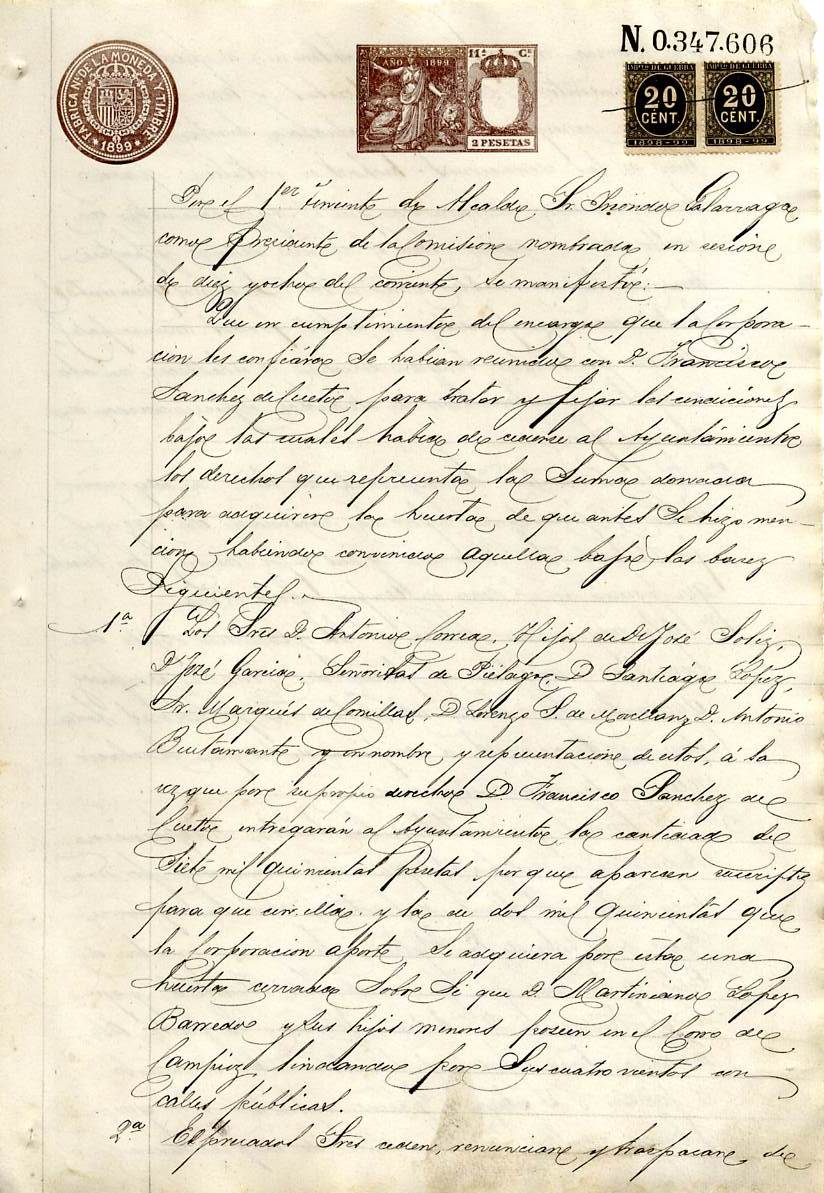 N. 0.347.606
FABRICA N. DE LA MONEDA Y TIMBRE
1899
AÑO 1899
11ª Cª
2 PESETAS
IMPTO DE GUERRA IMPTO DE GUERRA
20 CENT. 20 CENT.
1898-99 1898-99
Por el 1er Teniente de Alcalde Sr.
como Presidente de la Comision nombrada en sesion
de diez y ocho del corriente, se manifestó:
Que en cumplimiento del encargo que la Corpora-
cion les confiára se habian reunido con D. Francisco
Sanchez de Cueto para tratar y fijar las condiciones
bajo las cuales habia de cederse al Ayuntamiento
los derechos que representa la suma donada
para adquirir la huerta de que antes se hizo men-
cion, habiendo convenido aquella bajo las bases
siguientes.
1ª Los Sres D. Antonio Correa, Hijos de D. José Soliz,
D. José Garcia, Señoritas de Piélago, D. Santiago Lopez,
Sr. Marqués de Comillas, D. Lorenzo S. de Movellan y D. Antonio
Bustamante y en nombre y representacion de estos, á la
vez que por su propio derecho D. Francisco Sanchez de
Cueto, entregarán al Ayuntamiento la cantidad de
Siete mil quinientas pesetas por que aparecen
para que con ella y la de dos mil quinientas que
la Corporacion aporte se adquiera por esta una
huerta cerrada sobre si que D. Martiniano Lopez
Barredo y sus hijos menores poseen en el Corro de
Campíos lindando por sus cuatro vientos con
calles públicas.
2ª Espresados Sres ceden, renuncian y traspasan de